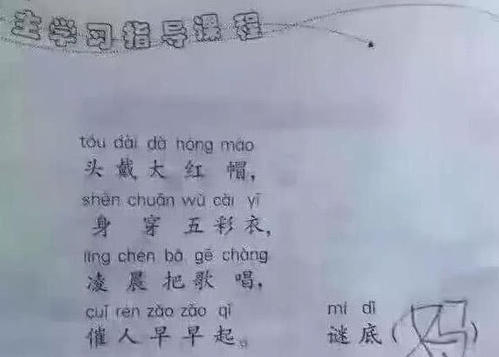 主学习指导课程
tóu dài dà hóng mào
头戴大红帽，
shēn chuān wǔ cǎi yī
身穿五彩衣，
líng chén bǎ gē chàng
凌晨把歌唱，
cuī rén zǎo zǎo qǐ mí dǐ
催人早早起。 谜底（